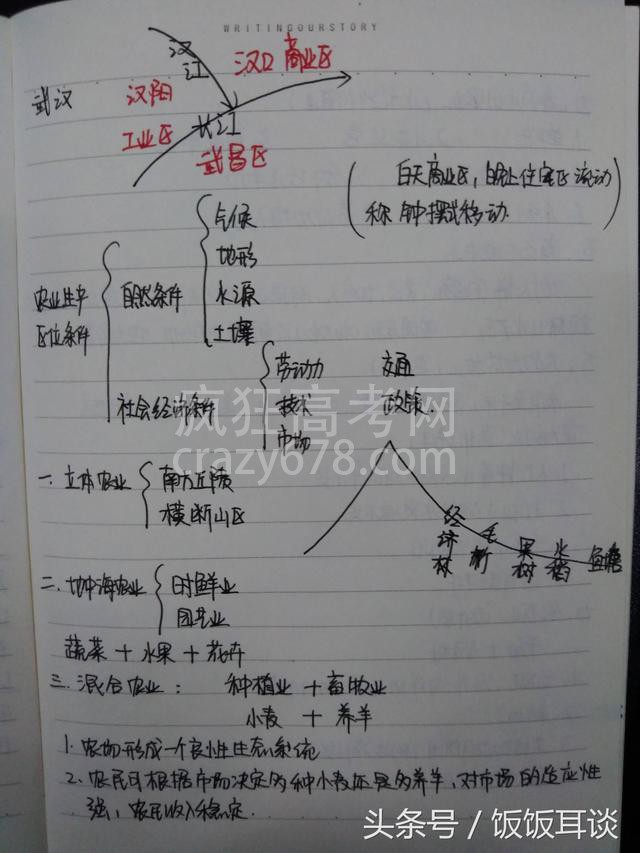 WRITINGOURSTORY
汉江
汉口商业区
武汉
汉阳
工业区
长江
武昌区
白天商业区,晚上住宅区流动
称钟摆式移动
农业生产
区位条件
自然条件
气候
地形
水源
土壤
社会经济条件
劳动力 交通
技术 政策.
市场
疯狂高考网
crazy678.com
一.立体农业
南方丘陵
横断山区
经济林
毛竹
果树
水稻
鱼塘
二.地中海农业
时鲜业
园艺业
蔬菜+水果+花卉
三.混合农业: 种植业+畜牧业
小麦 + 养羊
1.农场形成一个良性生态系统
2.农民可根据市场决定多种小麦还是多养羊,对市场的适应性
强,农民收入稳定.
头条号/饭饭耳谈